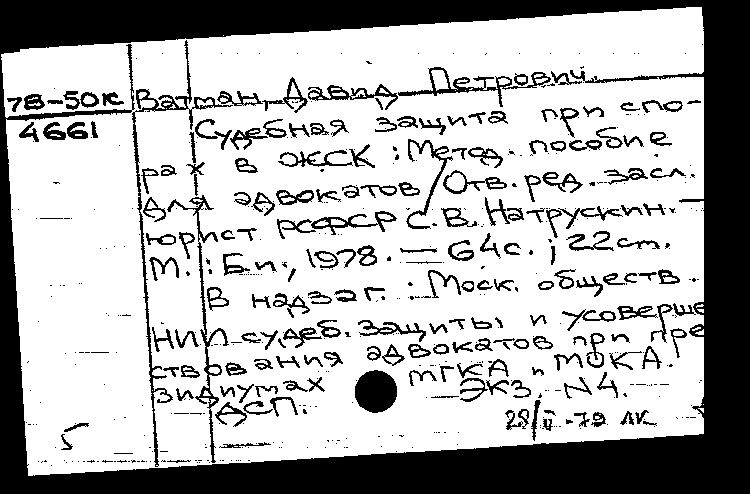 78-50к Ватман, Давид Петрович.
4661 Судебная защита при спо-
рах в ЖСК : Метод. пособие
для адвокатов / Отв. ред. засл.
юрист РСФСР С.В. Натрускин. —
М. : Б.и., 1978. — 64с. ; 22см.
В надзаг. : Моск. обществ.
НИИ судеб. защиты и усоверше
ствования адвокатов при пре
зидиумах МГКА и МОКА.
ДСП. Экз. N4.
5 28/II-79 ЛК